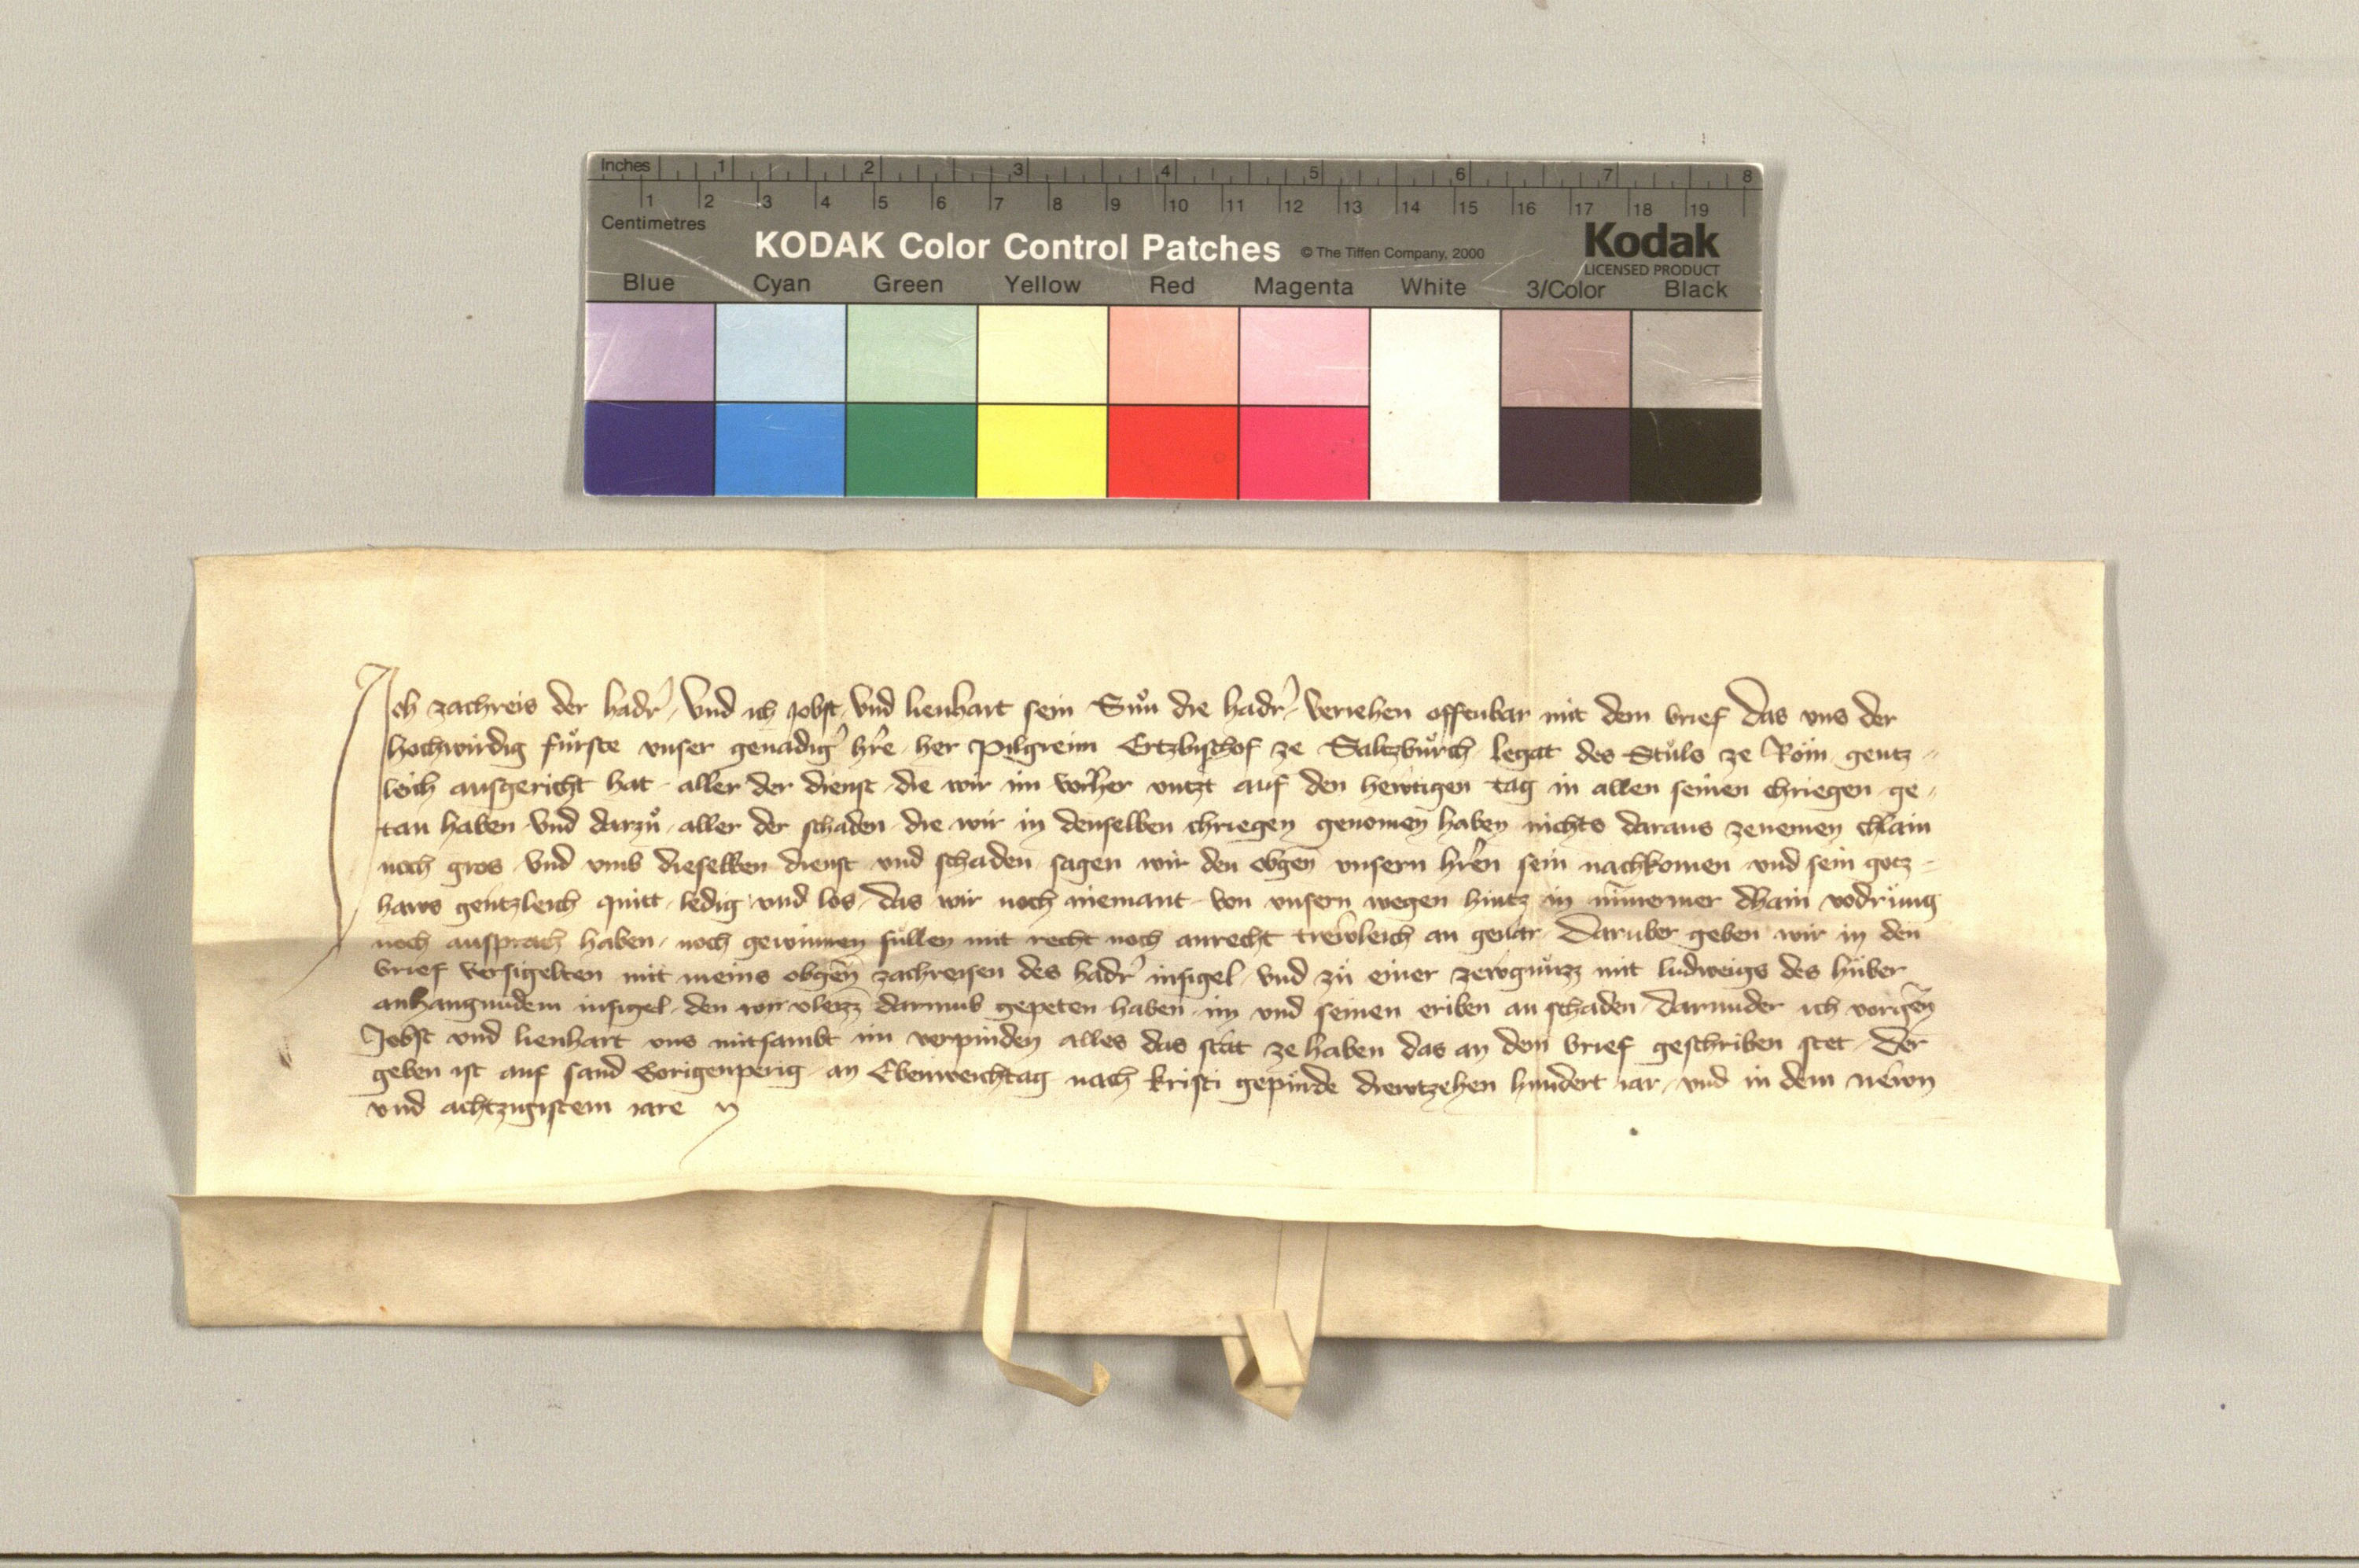 Inches 1 2 3 4 5 6 7 8
1 2 3 4 5 6 7 8 9 10 11 12 13 14 15 16 17 18 19
Centimetres
KODAK Color Control Patches © The Tiffen Company, 2000 Kodak
LICENSED PRODUCT
Blue Cyan Green Yellow Red Magenta White 3/Color Black
Ich zachreis der hadr̓ Vnd ich Jobst Vnd lienhart sein Sün die hadr̓ veriehen offenbar mit dem brief Das vns der
hochwirdig fürste vnser genadig̓ hr̓e her Pilgreim Ertzbischof ze Saltzburch legat des Stůls ze Rom gentz
leich ausgericht hat aller der dienst die wir im vorher vntzt auf den hewtigen tag in allen seinen chriegen ge
tan haben Vnd darzů aller der schaden die wir in denselben chriegen genomen haben nichts daraus zenemen chlain
noch gros Vnd vmb dieselben dienst vnd schaden sagen wir den obgen̄ vnsern hr̓en sein nachkomen vnd sein gotz
haws gentzleich quitt ledig vnd los das wir noch niemant von vnsern wegen hintz in nimermer dhain vodrung
noch ansprach haben noch gewinnen süllen mit recht noch anrecht trewleich an geuer Daruber geben wir in den
brief versigelten mit meins obgen̄ zachreisen des hadr̓ insigel Vnd zů einer zewgnüzz mit ludweigs des hüber
anhangundem insigel den wir vleizz darumb gepeten haben im vnd seinen eriben an schaden Darunder ich vorgen̄
Jobst vnd lienhart vns mitsambt im verpinden alles das stät ze haben das an dem brief geschriben stet Der
geben ist auf sand Gorigenperig an Ebenweichtag nach kristi gepürde drewtzehen hundert iar vnd in dem newn
vnd achtzigistem iare